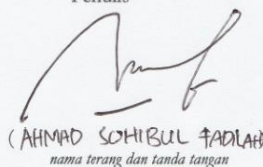 Penulis
(AHMAD SOHIBUL FADILAH)
nama terang dan tanda tangan